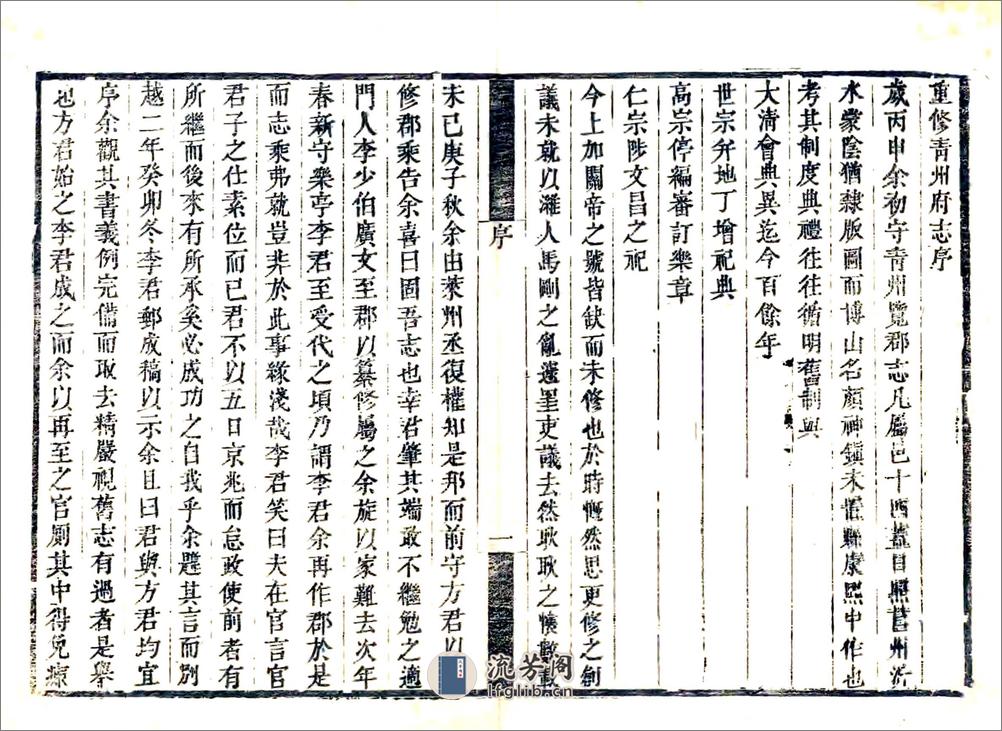 重修青州府志序
歲丙申余初守青州覽郡志凡屬邑十四蓋日照莒州沂
水蒙陰猶隸版圖而博山名顏神鎮未置縣康熙中作也
考其制度典禮往往循明舊制與
大清會典異迄今百餘年
世宗弁地丁增祀典
高宗停編審訂樂章
仁宗陟文昌之祀
今上加關帝之號皆缺而未修也於時慨然思更修之創
議未就以濰人馬剛之亂遘吏議去然耿耿之懷
未已庚子秋余由萊州丞復權知是邦而前守方君以
修郡乘告余喜曰固吾志也幸君肇其端敢不繼勉之適
門人李少伯廣文至郡以纂修屬之余旋以家難去次年
春新守樂亭李君至受代之頃乃謂李君余再作郡於是
而志乘弗就豈非於此事緣淺哉李君笑曰夫在官言官
君子之仕素位而已君不以五日京兆而怠政使前者有
所繼而後來有所承奚必成功之自我乎余韙其言而別
越二年癸卯冬李君郵成稿以示余且曰君與方君均宜
序余觀其書義例完備而取去精嚴視舊志有過者是舉
也方君始之李君成之而余以再至之官廁其中得免瘝
序
一
流芳阁
lfglib.cn